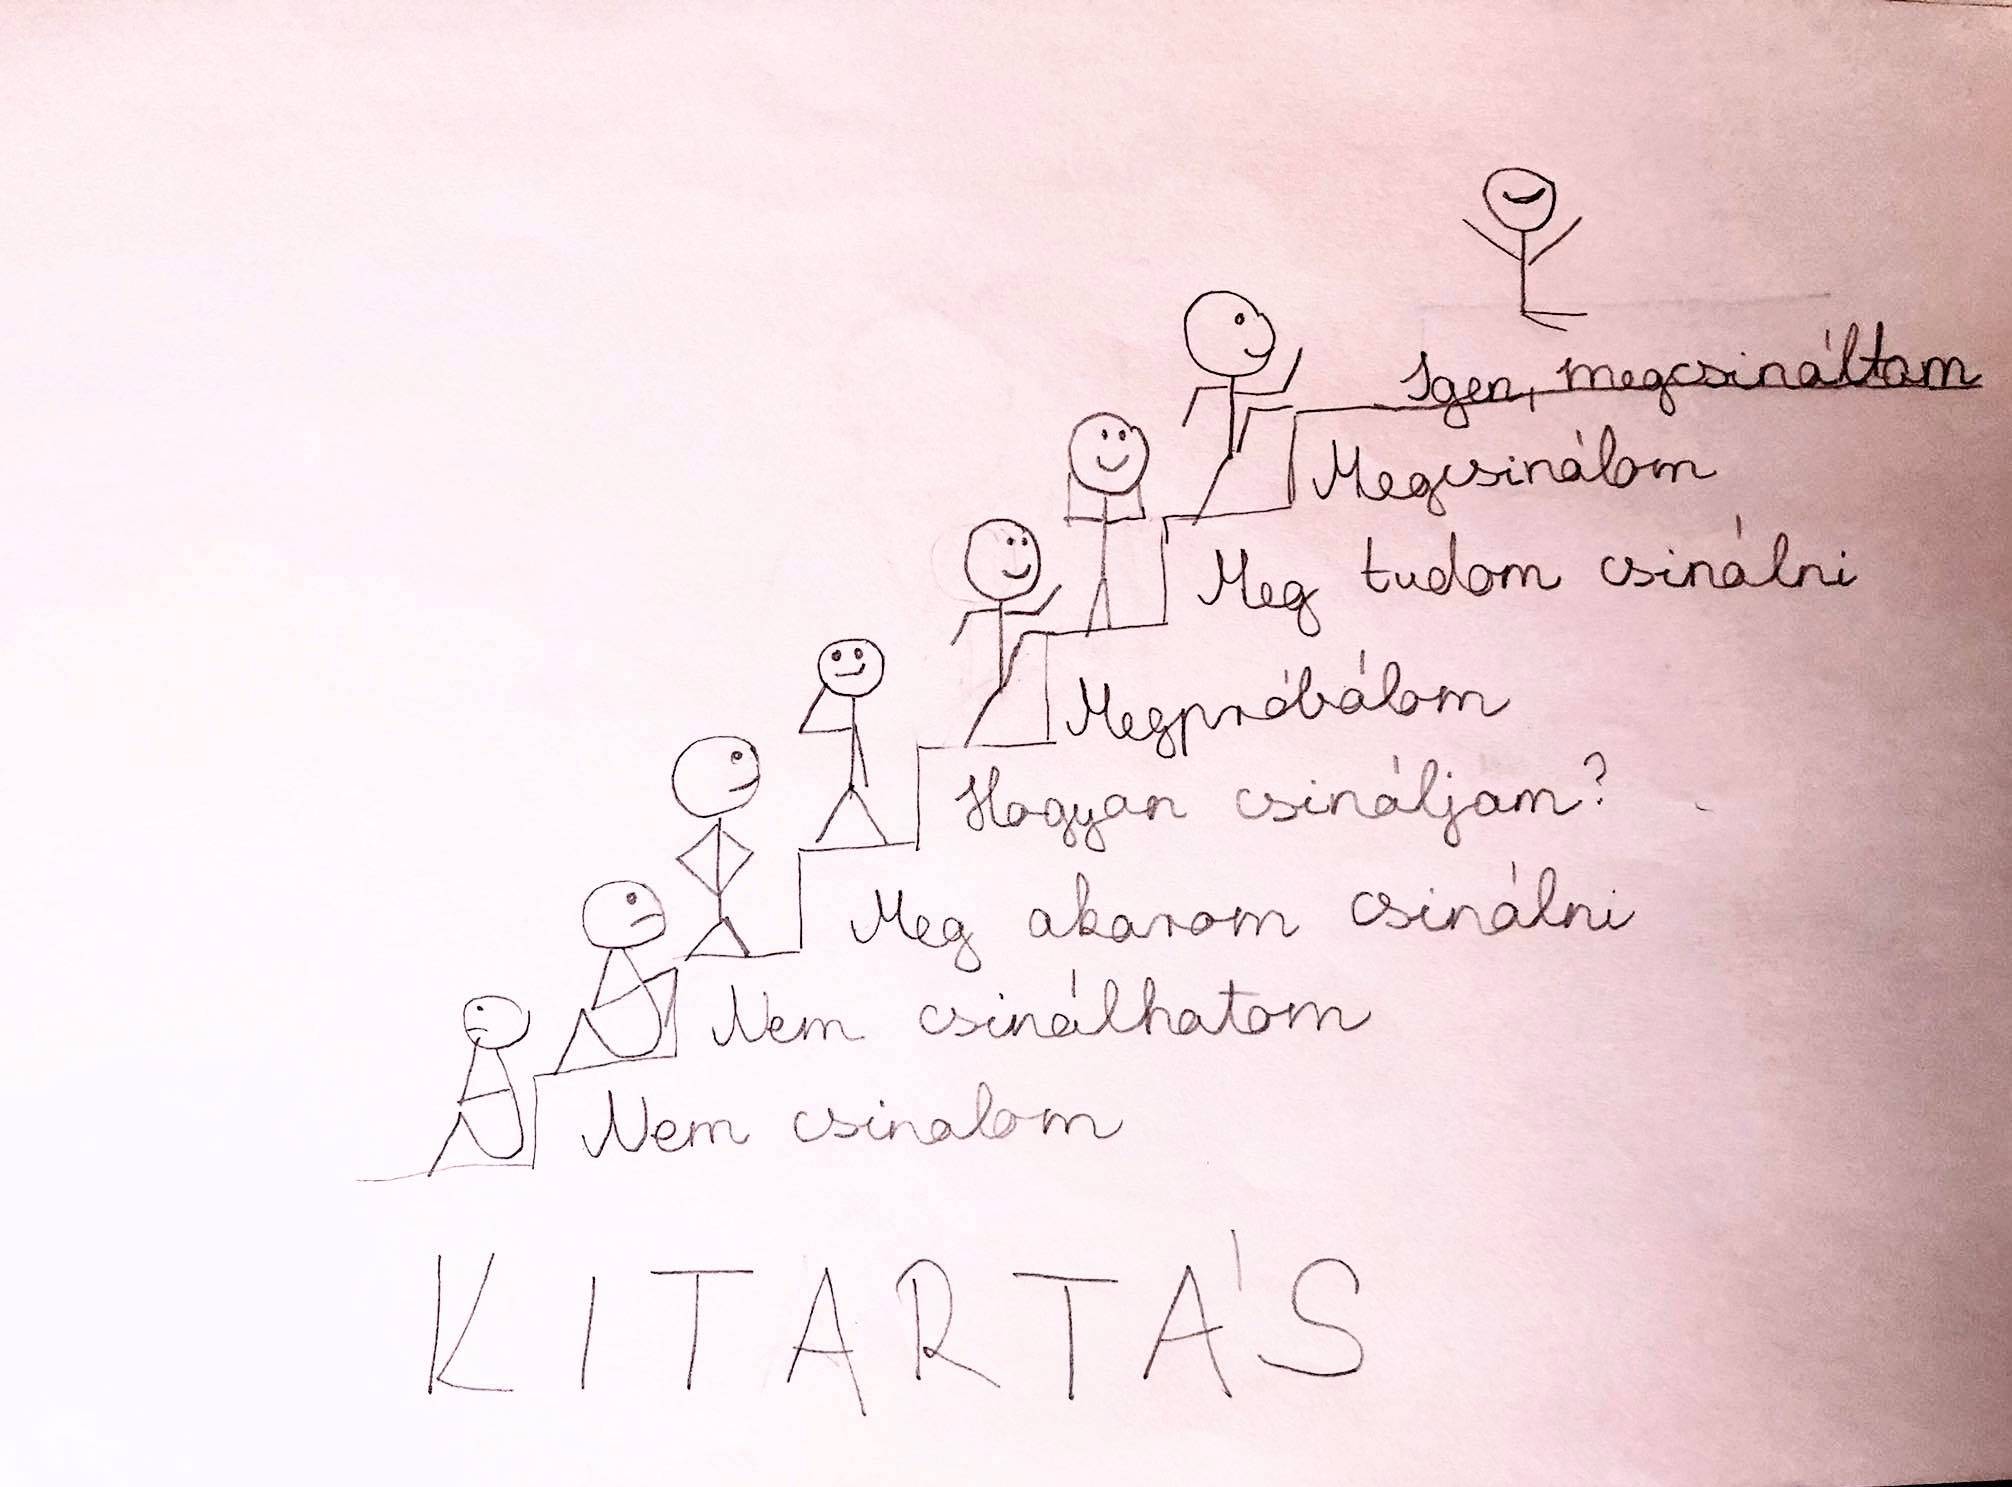 Igen, megcsináltam
Megcsinálom
Meg tudom csinálni
Megpróbálom
Hogyan csináljam?
Meg akarom csinálni
Nem csinálhatom
Nem csinalom
KITARTÁS